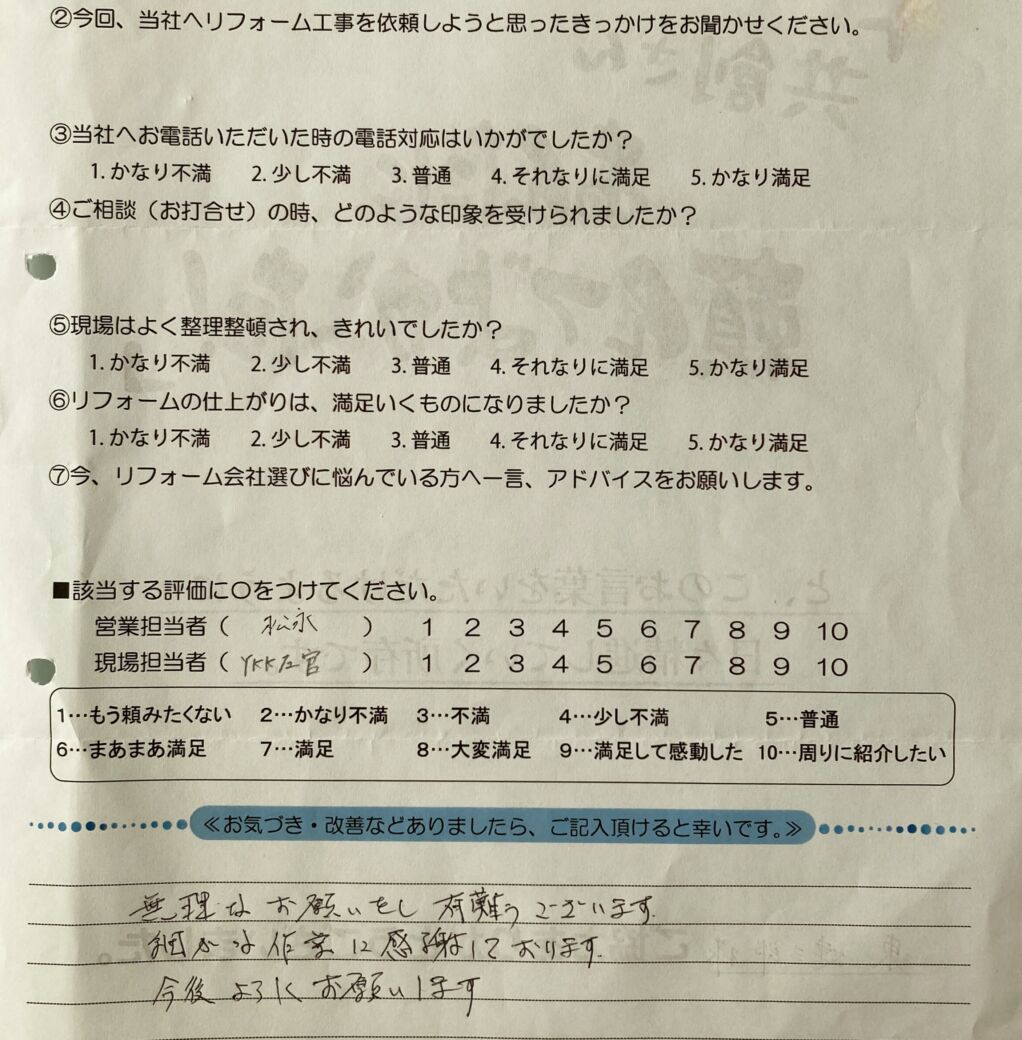 ②今回、当社へリフォーム工事を依頼しようと思ったきっかけをお聞かせください。
③当社へお電話いただいた時の電話対応はいかがでしたか？
1. かなり不満 2. 少し不満 3. 普通 4. それなりに満足 5. かなり満足
④ご相談（お打合せ）の時、どのような印象を受けられましたか？
⑤現場はよく整理整頓され、きれいでしたか？
1. かなり不満 2. 少し不満 3. 普通 4. それなりに満足 5. かなり満足
⑥リフォームの仕上がりは、満足いくものになりましたか？
1. かなり不満 2. 少し不満 3. 普通 4. それなりに満足 5. かなり満足
⑦今、リフォーム会社選びに悩んでいる方へ一言、アドバイスをお願いします。
■該当する評価に〇をつけてください。
営業担当者（ 松永 ） 1 2 3 4 5 6 7 8 9 10
現場担当者（ YKK左官 ） 1 2 3 4 5 6 7 8 9 10
1…もう頼みたくない 2…かなり不満 3…不満 4…少し不満 5…普通
6…まあまあ満足 7…満足 8…大変満足 9…満足して感動した 10…周りに紹介したい
≪お気づき・改善などありましたら、ご記入頂けると幸いです。≫
無理なお願いをし有難うございます.
細かな作業に感謝しております.
今後よろしくお願いします